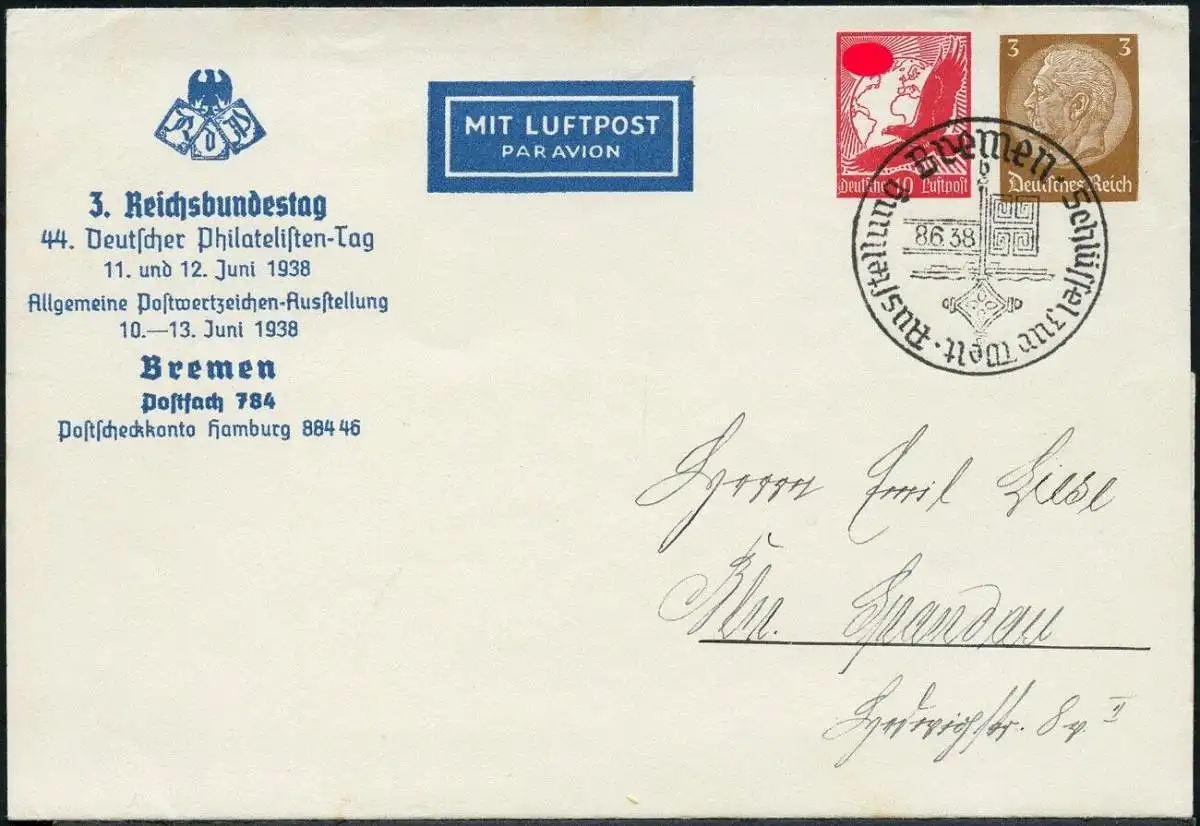 R D P
3. Reichsbundestag
44. Deutscher Philatelisten-Tag
11. und 12. Juni 1938
Allgemeine Postwertzeichen-Ausstellung
10.—13. Juni 1938
Bremen
Postfach 784
Postscheckkonto Hamburg 884 46
MIT LUFTPOST
PAR AVION
Deutsche Luftpost
3 3
Deutsches Reich
Bremen · Schlüssel zur Welt · Ausstellung
b
8.6.38
Herrn Emil Liese
Bln. Spandau
Hedwigstr. 8 v. II